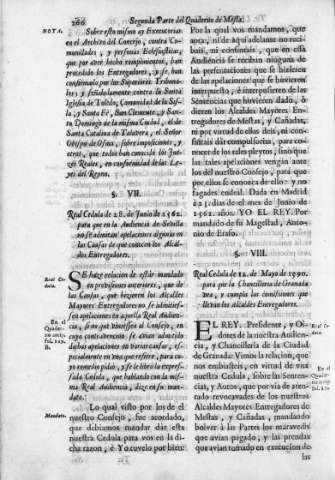 266 Segunda Parte del Quaderno de Mesta.
NOTA.
Sobre esto mismo ay Executorias
en el Archivo del Concejo, contra Co-
munidades, y personas Eclesiasticas,
que por aver hecho rompimientos, han
procedido los Entregadores, y se han
confirmado por los Superiores Tribuna-
les: y señaladamente contra la Santa
Iglesia de Toledo, Comunidad de la Sis-
la, y Santa Fè, San Clemente, y San-
to Domingo de la misma Ciudad, el de
Santa Catalina de Talavera, el Señor
Obispo de Osma, sobre imposiciones, y
otros, que todos han conocido los Jue-
zes Reales, en conformidad de las Le-
yes del Reyno.
§. VII.
Real Cedula de 28. de Junio de 1562.
para que en la Audiencia de Sevilla
no se admitan apelaciones algunas en
las Causas de que conocen los Alcal-
des Entregadores.
Real Ce-
dula.
SE haze relacion de estàr mandado
en provisiones anteriores, que de
las Causas, que hizieren los Alcaldes
Mayores Entregadores no se admities-
sen apelaciones en aquella Real Audien-
cia, si no que viniessen al Consejo, en
cuya contravencion se avian admitido
En el
Quader-
no antig.
fol. 129.
B.
Mandato.
Lo qual visto por los de
nuestro Consejo, fue acordado,
que debiamos mandar dàr esta
nuestra Cedula para vos en la di-
cha razon, è Yo tuvelo por bien:
Por la qual vos mandamos, que
aora, ni de aqui adelante no reci-
bais, ni consintais, que en essa
Audiencia se reciban ninguna de
las presentaciones que se hizieren
de las apelaciones, que se huvieren
interpuesto, è interpusieren de las
Sentencias que huvieren dado, ò
dieren los Alcaldes Mayores En-
tregadores de Mestas, y Cañadas,
ni por virtud de ellos deis, ni con-
sintais dàr compulsorias, para co-
nocer de los tales pleytos, sino que
las tales apelaciones vengan ante
los del nuestro Consejo, para que
por ellos se conozca de ello: y no
fagades endeal. Dada en Madrid
de 1562. años. YO EL REY. Por
mandado de su Magestad, Anto-
nio de Erasso.
§. VIII.
Real Cedula de 12. de Mayo de 1590.
para que la Chancilleria de Granada
vea, y cumpla las comissiones que
llevan los Alcaldes Entregadores.
Real Ce-
dula.
EL REY. Presidente, y Oi-
dores de la nuestra Audiencia,
y Chancilleria de la Ciudad
de Granada: Vimos la relacion, que
nos embiasteis, en virtud de una
nuestra Cedula, sobre las Senten-
cias, y Autos, que por via de aten-
tado aveis revocado de los nuestros
Alcaldes Mayores Entregadores de
Mestas, y Cañadas, y mandando
bolver à las Partes los maravedis
que avian pagado, y las prendas
que avian dado por las condenacio-
En el
Quader-
no antig.